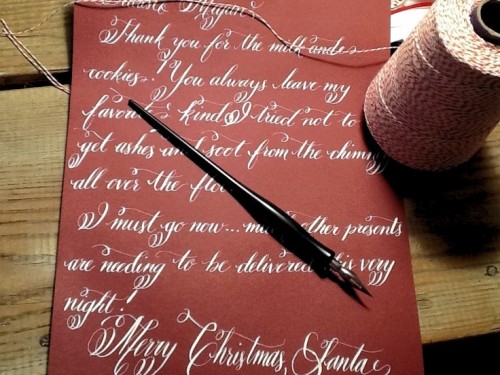 Megan
Thank you for the milk and
cookies! You always leave my
favorite kind I tried not to
get ashes and soot from the chimney
all over the
I must go now... other presents
are needing to be delivered this very
night!
Merry Christmas, Santa